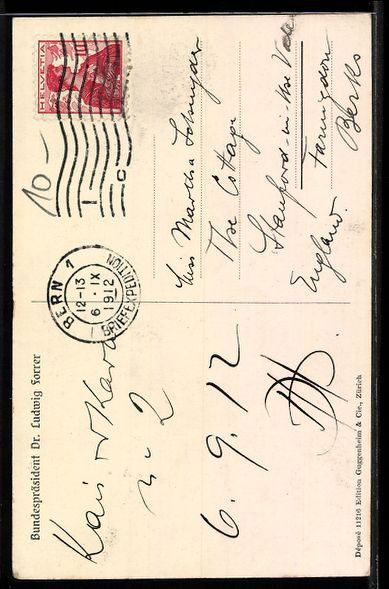 Bundespräsident Dr. Ludwig Forrer
HELVETIA
10
BERN 1
12-13
6. IX
1912
BRIEFEXPEDITION
10 –
Miss Martha
The Cottage
Stanford-in-the Vale
Farringdon
Berks
England.
Kais
No 2
6. 9. 12
Déposé 11216 Edition Guggenheim & Cie., Zürich